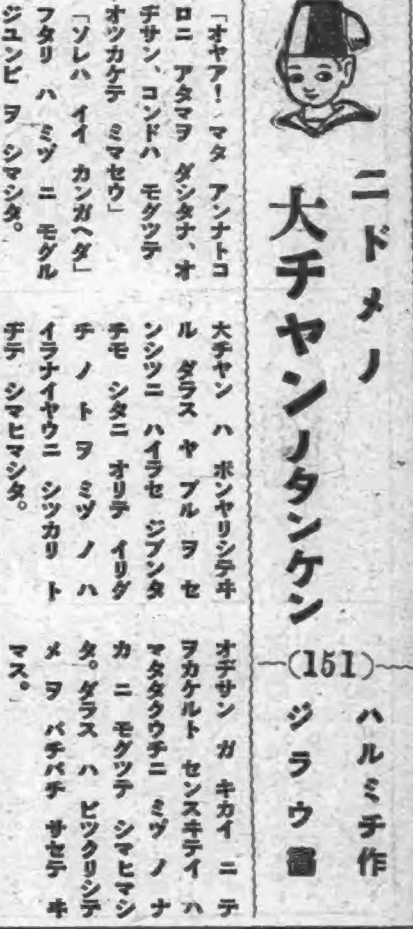 ニドメノ
大チヤンノタンケン
(151)
ハルミチ作
ジラウ畫
「オヤア！マタ アンナトコ
ロニ アタマヲ ダシタナ、オ
ヂサン、コンドハ モグツテ
オツカケテ ミマセウ」
「ソレハ イイ カンガヘダ」
フタリ ハ ミヅ ニ モグル
ジユンビ ヲ シマシタ。
大チヤン ハ ボンヤリシテヰ
ル ダラス ヤ ブル ヲ セ
ンシツニ ハイラセ ジブンタ
チモ シタニ オリテ イリグ
チ ノ トヲ ミヅ ノ ハ
イラナイヤウニ シツカリ ト
ヂテ シマヒマシタ。
オヂサン ガ キカイ ニ テ
ヲカケルト センスヰテイ ハ
マタタクウチニ ミヅ ノ ナ
カ ニ モグツテ シマヒマシ
タ。ダラス ハ ビツクリシテ
メ ヲ パチパチ サセテ ヰ
マス。」